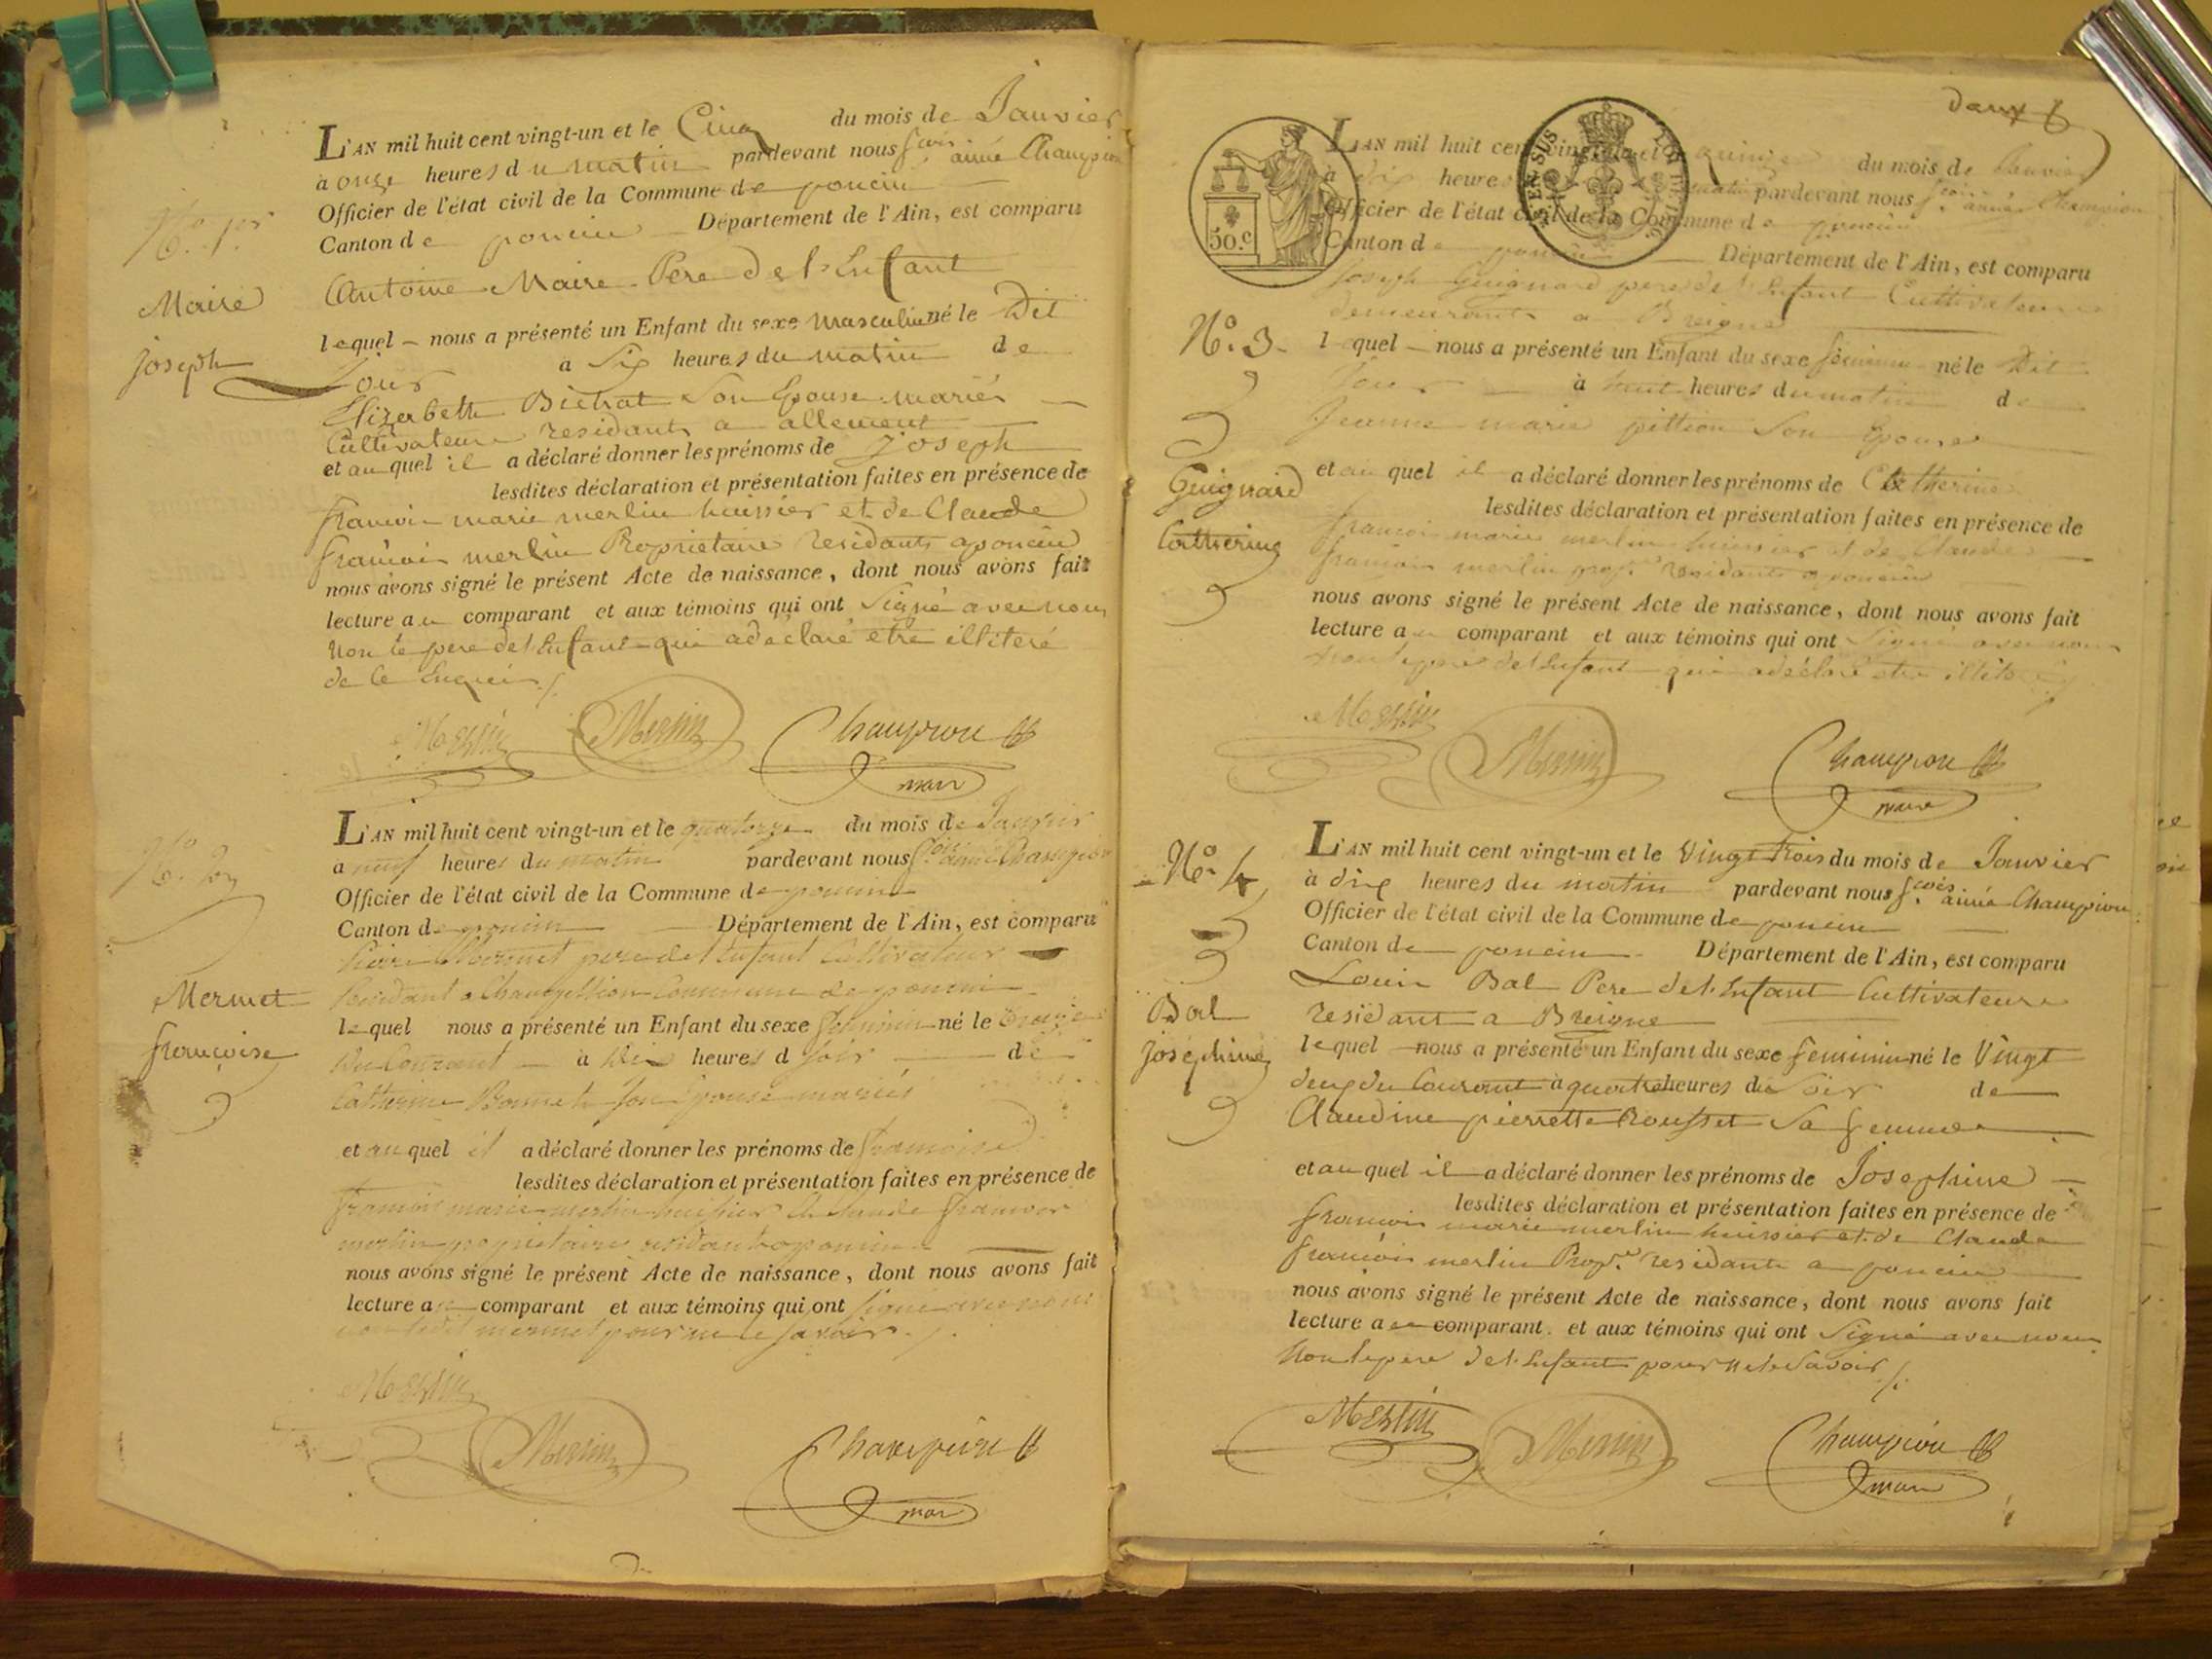 N.º 1.er
Maire
joseph
L'AN mil huit cent vingt-un et le Cinq du mois de Janvier
à onze heures du matin pardevant nous f.cois aimé Champion
Officier de l'état civil de la Commune de poncin
Canton de poncin Département de l'Ain, est comparu
Antoine Maire Pere de l'Enfant
lequel nous a présenté un Enfant du sexe masculin né le Dit
Jour à Six heures du matin de
Elizabeth Bichat Son Epouse mariés
Cultivateurs residants a allement
et au quel il a déclaré donner les prénoms de joseph
lesdites déclaration et présentation faites en présence de
francois marie merlin huissier et de Claude
francois merlin Propriétaire residants a poncin
nous avons signé le présent Acte de naissance, dont nous avons fait
lecture au comparant et aux témoins qui ont Signé avec nous
Non le pere de l'Enfant qui a déclaré etre illiteré
de ce Enquis
Merlin Merlin Champion
maire
N.º 2
Mermet
françoise
L'AN mil huit cent vingt-un et le quatorze du mois de Janvier
a neuf heures du matin pardevant nous f.cois aimé Champion
Officier de l'état civil de la Commune de poncin
Canton de poncin Département de l'Ain, est comparu
Pierre Mermet pere de l'Enfant Cultivateur
Residant a Champeillon Commune de poncin
lequel nous a présenté un Enfant du sexe feminin né le treize
du Courant à Dix heures d soir de
Catherine Bonnet son Epouse mariés
et au quel il a déclaré donner les prénoms de francoise
lesdites déclaration et présentation faites en présence de
francois marie merlin huissier et Claude francois
merlin propriétaire residants a poncin
nous avons signé le présent Acte de naissance, dont nous avons fait
lecture au comparant et aux témoins qui ont Signé avec nous
non ledit mermet pour ne le savoir
Merlin
Merlin Champion
maire
deux
50.C
L'AN mil huit cent vingt-un et le quinze du mois de Janvier
à dix heures matin pardevant nous f.cois aimé Champion
Officier de l'état civil de la Commune de poncin
Canton de poncin Département de l'Ain, est comparu
Joseph Guignard pere de l'Enfant Cultivateur
demeurant a Breigne
N.º 3.
Guignard
Catherine
lequel nous a présenté un Enfant du sexe féminin né le Dit
Jour à huit heures du matin de
Jeanne marie pittion Son Epouse
et au quel il a déclaré donner les prénoms de Catherine
lesdites déclaration et présentation faites en présence de
francois marie merlin huissier et de Claude
francois merlin prop.re residants a poncin
nous avons signé le présent Acte de naissance, dont nous avons fait
lecture au comparant et aux témoins qui ont Signé avec nous
non le pere de l'Enfant qui a déclaré etre illiteré
Merlin Merlin Champion
maire
N.º 4
Bal
Joséphine
L'AN mil huit cent vingt-un et le Vingt trois du mois de Janvier
à dix heures du matin pardevant nous f.cois aimé Champion
Officier de l'état civil de la Commune de poncin
Canton de poncin Département de l'Ain, est comparu
Louis Bal Pere de l'Enfant Cultivateur
residant a Breigne
lequel nous a présenté un Enfant du sexe feminin né le Vingt
deux du Courant à quatre heures du Soir de
Claudine pierrette Rousset Sa femme
et au quel il a déclaré donner les prénoms de Josephine
lesdites déclaration et présentation faites en présence de
francois marie merlin huissier et de Claude
francois merlin Prop.re residants a poncin
nous avons signé le présent Acte de naissance, dont nous avons fait
lecture au comparant et aux témoins qui ont Signé avec nous
Non le pere de l'Enfant pour ne le Savoir
Merlin Merlin Champion
maire